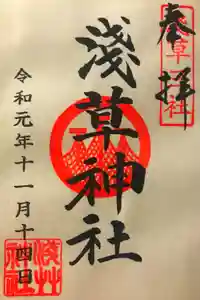 奉拝
淺草神社
令和元年十一月十四日
淺草神社